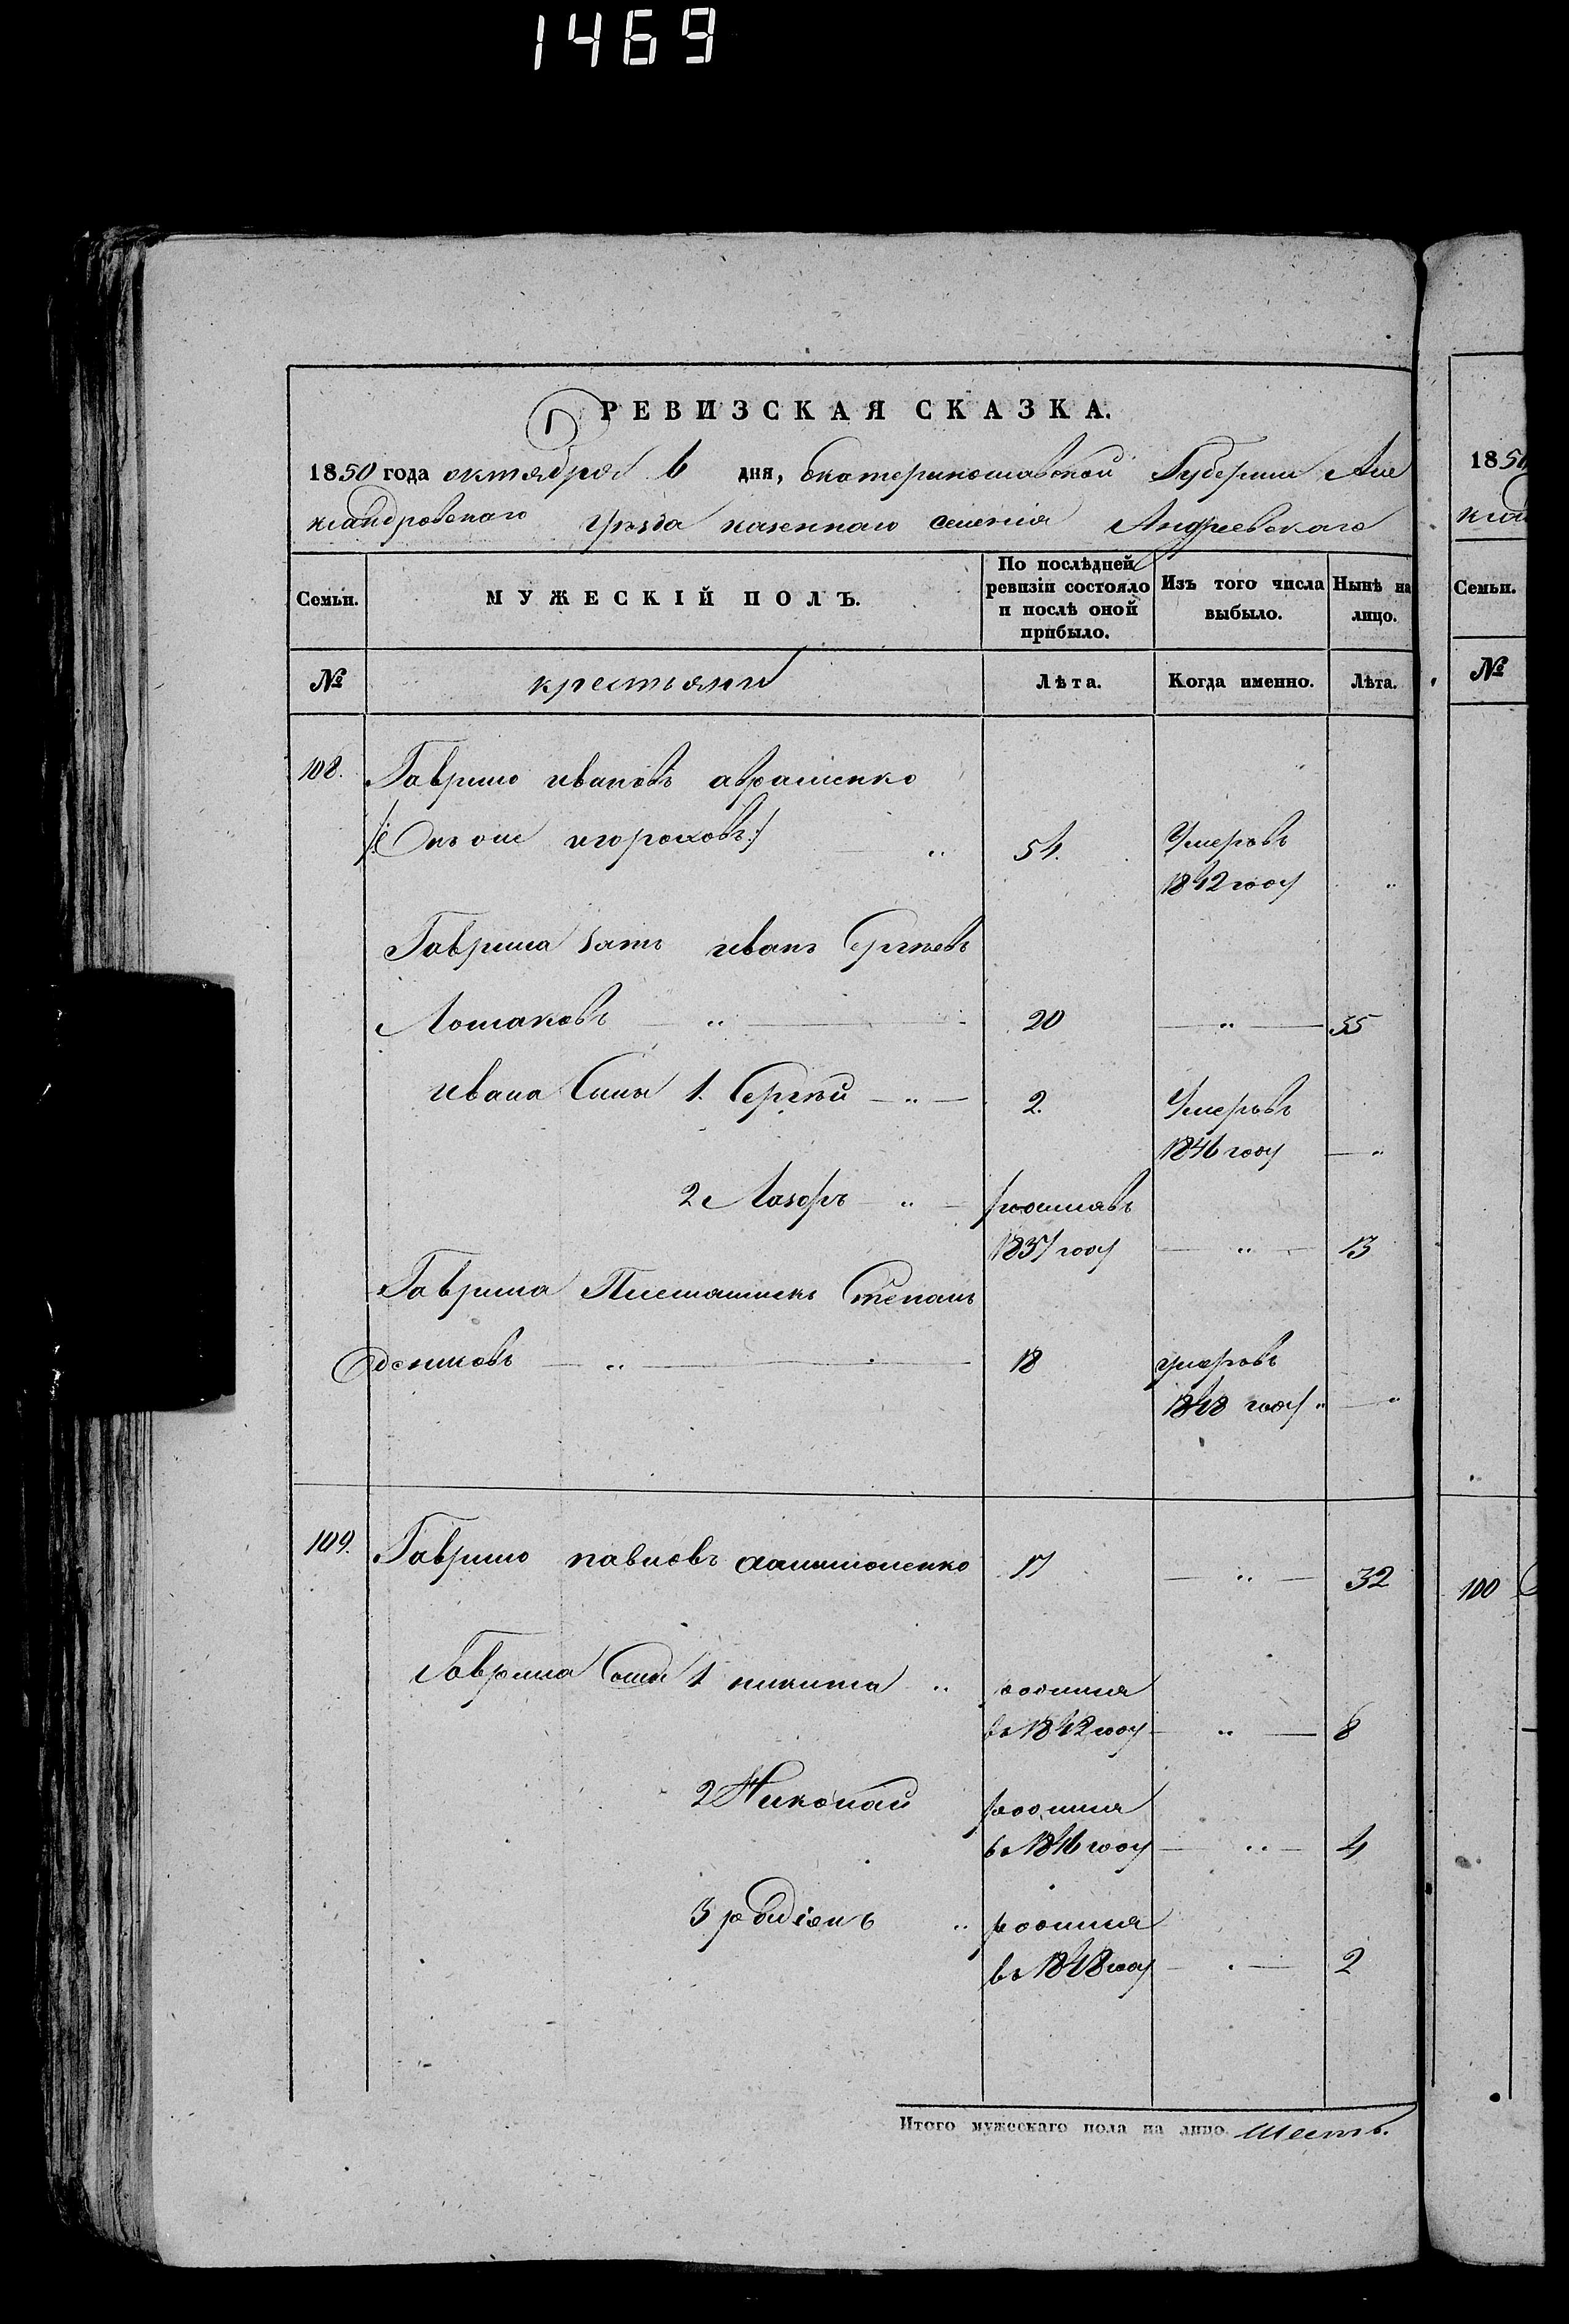 1469
РЕВИЗСКАЯ СКАЗКА.
1
1850 года октября 6 дня, Екатеринославской Губернии Але
ксандровскаго Уѣзда казеннаго селенія Андреевскаго
Семьи.
МУЖЕСКІЙ ПОЛЪ.
По послѣдней ревизіи состояло и послѣ оной прибыло.
Изъ того числа выбыло.
Нынѣ на лицо.
№
крестьяни
Лѣта.
Когда именно.
Лѣта.
108. Гаврило ивановъ авраменко
/: Онъ же игороховъ :/ 54. Умеръ въ
1842 году
Гаврила зять иванъ Сергѣевъ
Лошаковъ 20 35
ивана Сыны 1. Сергѣй 2. Умеръ въ
1846 году
2 Лазарь родился въ
1837 году 13
Гаврила Племянникъ Степанъ
18 умеръ въ
1848 году
109. Гаврило павловъ 17 32
Гаврила Сыны 1 никита родился
въ 1842 году 8
2 Николай родился
въ 1846 году 4
3 родіонъ родился
въ 1848 году 2
Итого мужескаго пола на лицо Шесть.
1850
ксан
Семьи.
№
100